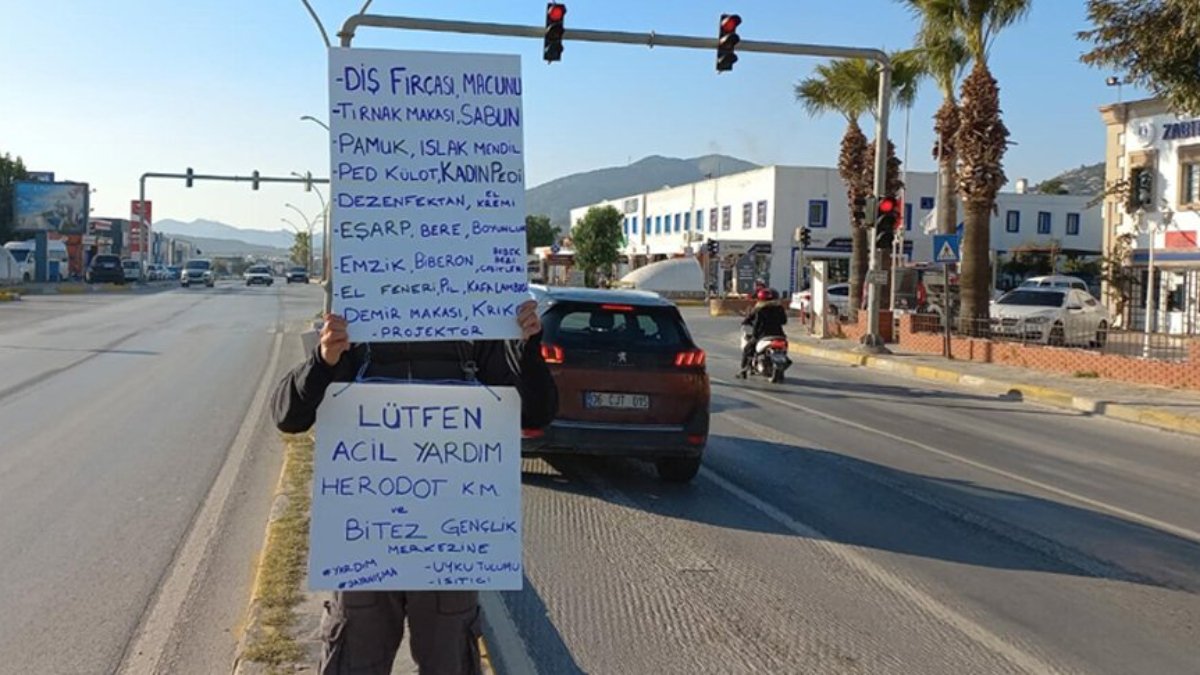 -DİŞ FIRÇASI, MACUNU
-TIRNAK MAKASI, SABUN
-PAMUK, ISLAK MENDİL
-PED KÜLOT, KADIN PEDİ
-DEZENFEKTAN, EL KREMİ
-EŞARP, BERE, BOYUNLUK
-EMZİK, BİBERON, BEBEK
-EL FENERİ, PİL, KAFA LAMBASI
DEMİR MAKASI, KRİKO
-PROJEKTÖR
LÜTFEN
ACİL YARDIM
HERODOT KM.
ve
BİTEZ GENÇLİK
MERKEZİNE
#YARDIM
#DAYANIŞMA
-UYKU TULUMU
-ISITICI
06 CJT 015
ZABIT